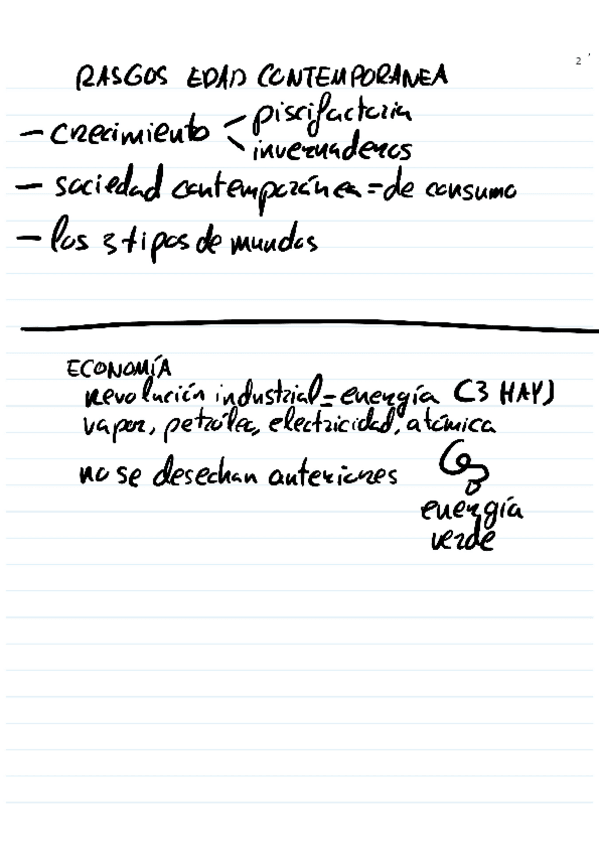 2
RASGOS EDAD CONTEMPORANEA
- crecimiento < piscifactoria
invernaderos
- sociedad contemporánea = de consumo
- los 3 tipos de mundos
ECONOMÍA
revolución industrial = energía (3 HAY)
vapor, petróleo, electricidad, atómica
no se desechan anteriores
energía
verde